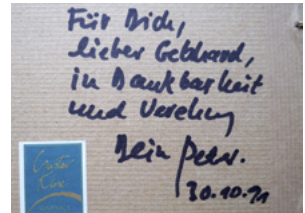 Für Dich,
lieber Gebhard,
in Dankbarkeit
und Verehrung
Dein Peter.
30.10.91